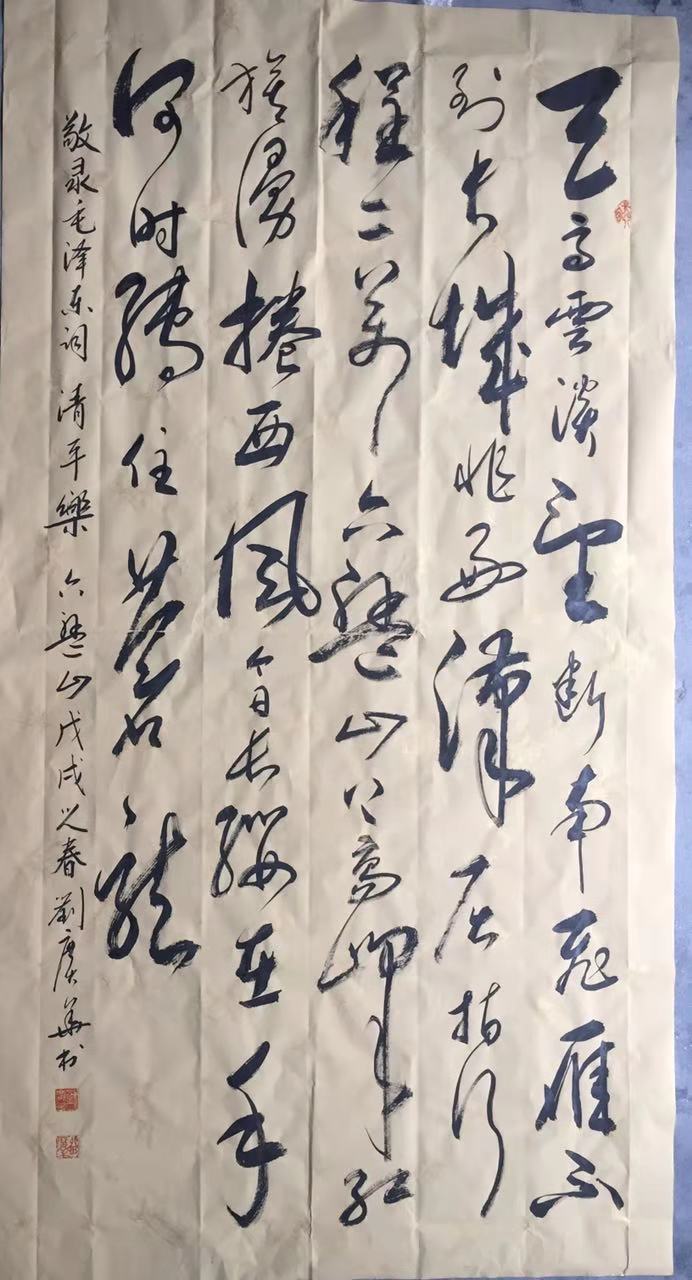 天高雲淡望断南飛雁不
到长城非好漢屈指行
程二萬六盤山上高峰红
旗漫捲西風今日长纓在手
何时縛住蒼龍
敬录毛泽东词 清平樂 六盤山 戊戌之春 劉廣華书